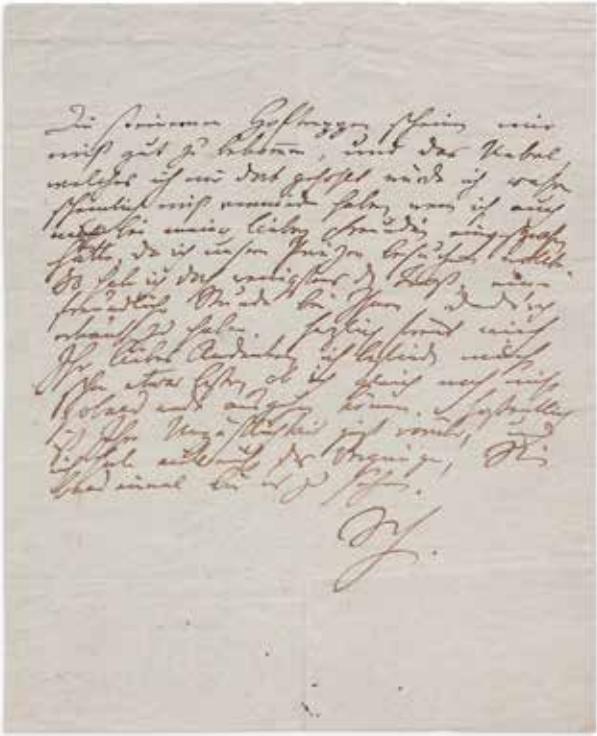 Die steinernen Hoftreppen scheinen mir
nicht gut zu bekommen, und das Uebel,
welches ich mir dort gehohlt würde ich wahr
scheinlich nicht vermieden haben, wenn ich auch
nicht bei meiner lieben Freundin eingesprochen
hätte, da ich unsern Prinzen besuchen wollte.
So hab ich doch wenigstens den Trost, eine
freundliche Stunde bei Ihnen dadurch
erkauft zu haben. Herzlich freut mich
Ihr liebes Andenken, ich befinde mich
schon etwas besser, ob ich gleich noch nicht
sobald werde ausgehn können. Hoffentlich
ist Ihre Unpäßlichkeit jezt vorüber, und
das Vergnügen, Sie
bald einmal bei uns zu sehen.
Sch.